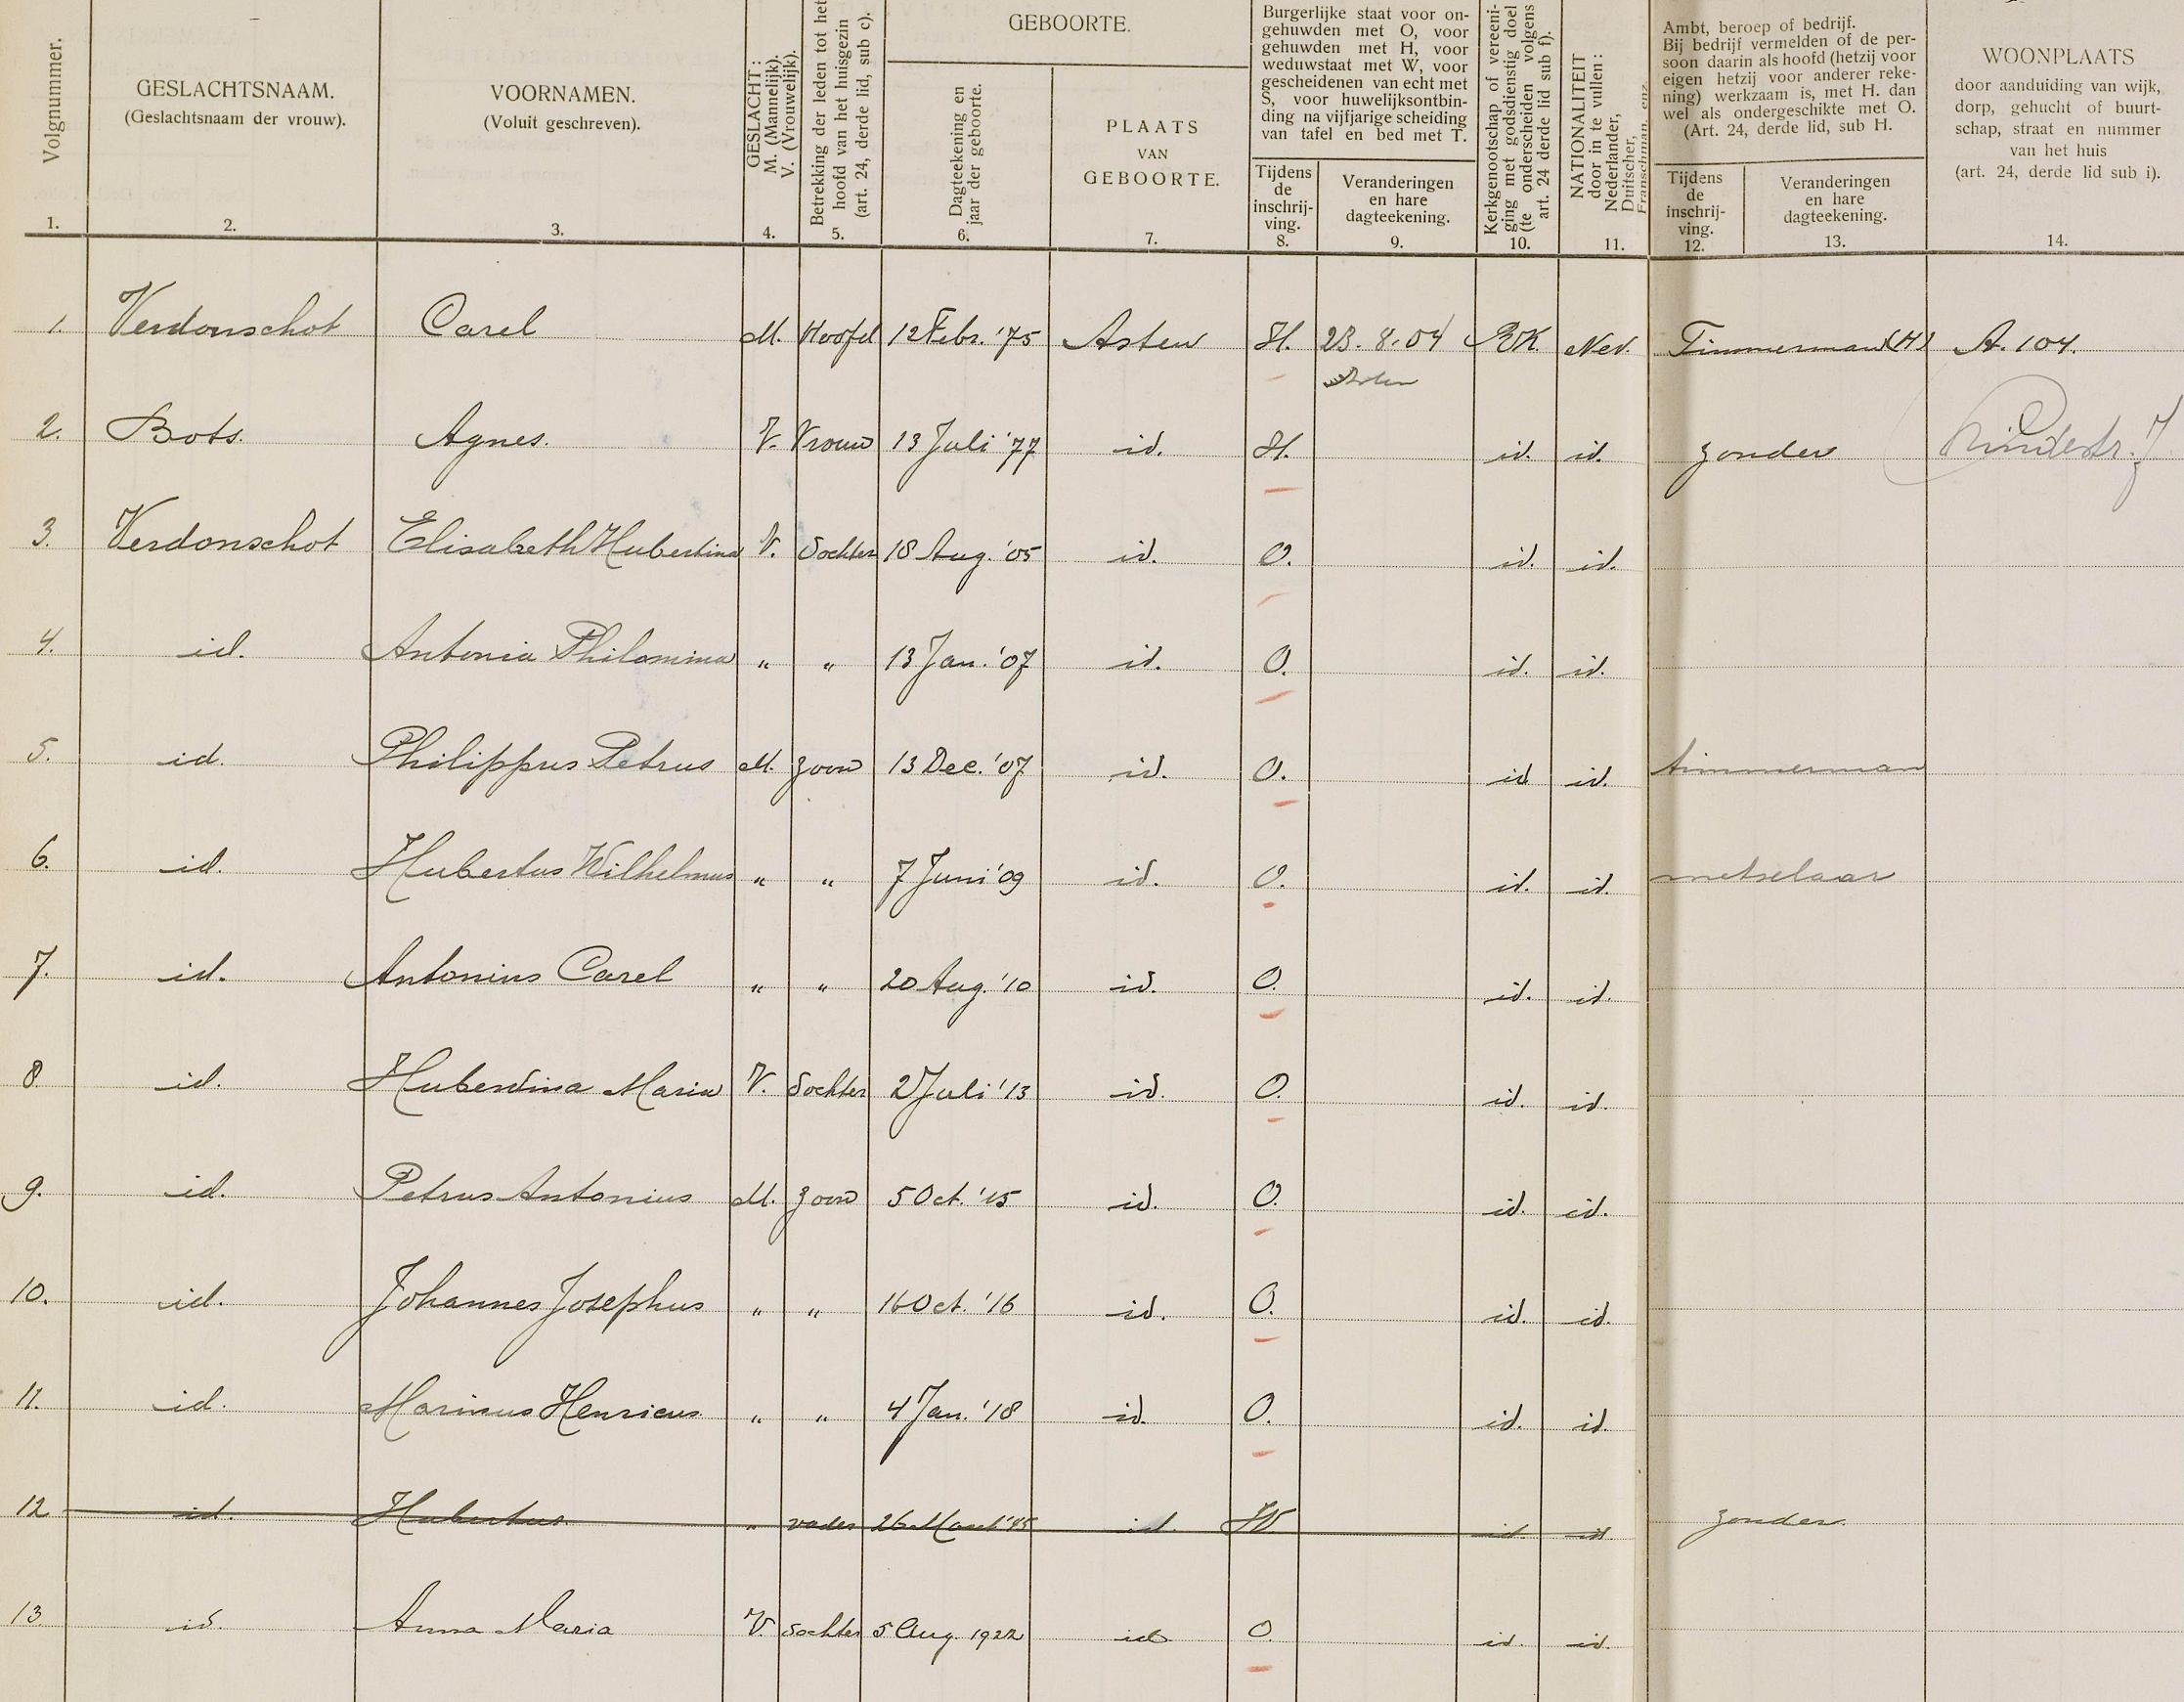 Volgnummer.
1.
GESLACHTSNAAM.
(Geslachtsnaam der vrouw).
2.
VOORNAMEN.
(Voluit geschreven).
3.
GESLACHT:
M. (Mannelijk).
V. (Vrouwelijk).
4.
Betrekking der leden tot het
hoofd van het huisgezin
(art. 24, derde lid, sub c).
5.
GEBOORTE.
Dagteekening en
jaar der geboorte.
6.
PLAATS
VAN
GEBOORTE.
7.
Burgerlijke staat voor on-
gehuwden met O, voor
gehuwden met H, voor
weduwstaat met W, voor
gescheidenen van echt met
S, voor huwelijksontbin-
ding na vijfjarige scheiding
van tafel en bed met T.
Tijdens
de
inschrij-
ving.
8.
Veranderingen
en hare
dagteekening.
9.
Kerkgenootschap of vereeni-
ging met godsdienstig doel
(te onderscheiden volgens
art. 24 derde lid sub f).
10.
NATIONALITEIT
door in te vullen:
Nederlander,
Duitscher,
Franschman, enz.
11.
Ambt, beroep of bedrijf.
Bij bedrijf vermelden of de per-
soon daarin als hoofd (hetzij voor
eigen hetzij voor anderer reke-
ning) werkzaam is, met H. dan
wel als ondergeschikte met O.
(Art. 24, derde lid, sub H.
Tijdens
de
inschrij-
ving.
12.
Veranderingen
en hare
dagteekening.
13.
WOONPLAATS
door aanduiding van wijk,
dorp, gehucht of buurt-
schap, straat en nummer
van het huis
(art. 24, derde lid sub i).
14.
1. Verdonschot Carel M. Hoofd 12 Febr. '75 Asten H. 23.8.04 RK Ned. Timmerman (H) A. 104.
Asten
2. Bots. Agnes. V. Vrouw 13 Juli '77 id. H. id. id. zonder
3. Verdonschot Elisabeth Hubertina V. dochter 18 Aug. '05 id. O. id. id.
4. id. Antonia Philomina " " 13 Jan. '07 id. O. id. id.
5. id. Philippus Petrus M. zoon 13 Dec. '07 id. O. id id. timmerman
6. id. Hubertus Wilhelmus " " 7 Juni '09 id. O. id. id. metselaar
7. id. Antonius Carel " " 20 Aug. '10 id. O. id. id.
8 id. Huberdina Maria V. dochter 2 Juli '13 id. O. id. id.
9. id. Petrus Antonius M. zoon 5 Oct. '15 id. O. id. id.
10. id. Johannes Josephus " " 16 Oct. '16 id. O. id. id.
11. id. Marinus Henricus " " 4 Jan. '18 id. O. id. id.
12 id. Hubertus " vader 26 Maart '45 id. W id. id zonder.
13. id. Anna Maria V. dochter 5 Aug. 1922 id O. id. id.